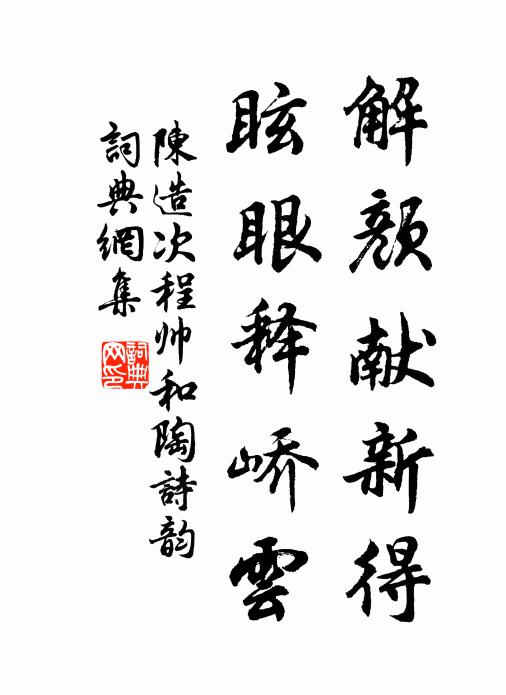 解颜献新得
眩眼释峤雲
陳造次程帅和陶詩韵
詞典網集
詞典网印